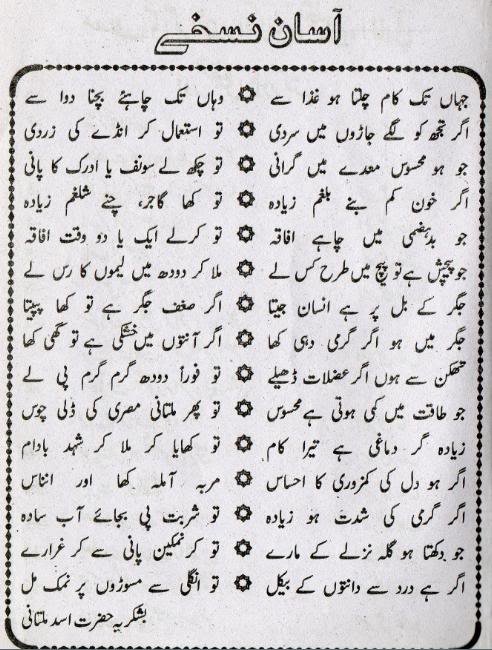 آسان نسخے
جہاں تک کام چلتا ہو غذا سے ۞ وہاں تک چاہئے بچنا دوا سے
اگر تجھ کو لگے جاڑوں میں سردی ۞ تو استعمال کر انڈے کی زردی
جو ہو محسوس معدے میں گرانی ۞ تو چکھ لے سونف یا ادرک کا پانی
اگر خون کم بنے بلغم زیادہ ۞ تو کھا گاجر، چنے شلغم زیادہ
جو بدہضمی میں چاہے افاقہ ۞ تو کرلے ایک یا دو وقت افاقہ
جو پیچش ہے تو پیچ میں طرح کس لے ۞ ملا کر دودھ میں لیموں کا رس لے
جگر کے بل پر ہے انسان جیتا ۞ اگر ضعف جگر ہے تو کھا پپیتا
جگر میں ہو اگر گرمی دہی کھا ۞ اگر آنتوں میں خشکی ہے تو گھی کھا
تھکن سے ہوں اگر عضلات ڈھیلے ۞ تو فوراً دودھ گرم گرم پی لے
جو طاقت میں کمی ہوتی ہے محسوس ۞ تو پھر ملتانی مصری کی ڈلی چوس
زیادہ گر دماغی ہے تیرا کام ۞ تو کھایا کر ملا کر شہد بادام
اگر ہو دل کی کمزوری کا احساس ۞ مربہ آملہ کھا اور انناس
اگر گرمی کی شدت ہو زیادہ ۞ تو شربت پی بجائے آب سادہ
جو دکھتا ہو گلہ نزلے کے مارے ۞ تو کر نمکین پانی سے کر غرارے
اگر ہے درد سے دانتوں کے بیکل ۞ تو انگلی سے مسوڑوں پر نمک مل
بشکریہ حضرت اسد ملتانی